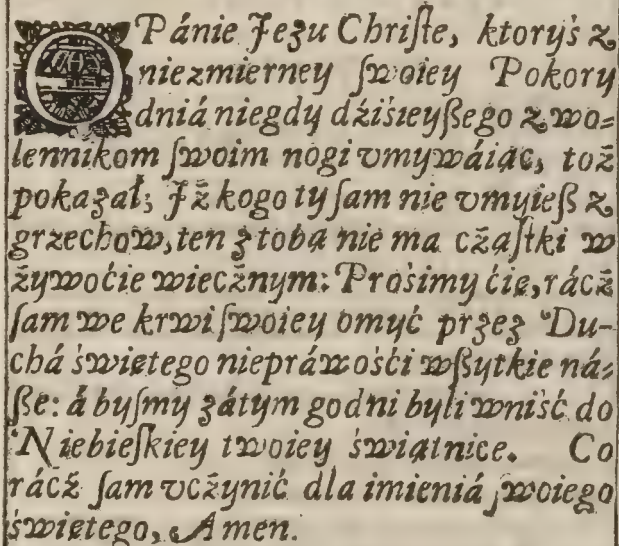 O Pánie Jezu Chriſte, ktoryś z
niezmierney ſwoiey Pokory
dniá niegdy dźiśieyßego zwo⸗
lennikom ſwoim nogi vmywáiąc, toż
pokazał; Jż kogo ty ſam nie vmyieß z
grzechow, ten z tobą nie ma cżaſtki w
żywoćie wiecżnym: Prośimy ćię, rácż
ſam we krwi ſwoiey omyć przez Du-
chá świętego niepráwośći wßytkie ná⸗
ße: á byſmy zátym godni byli wniść do
Niebieſkiey twoiey świątnice. Co
rácż ſam vcżynić dla imieniá ſwoiego
świętego, Amen.